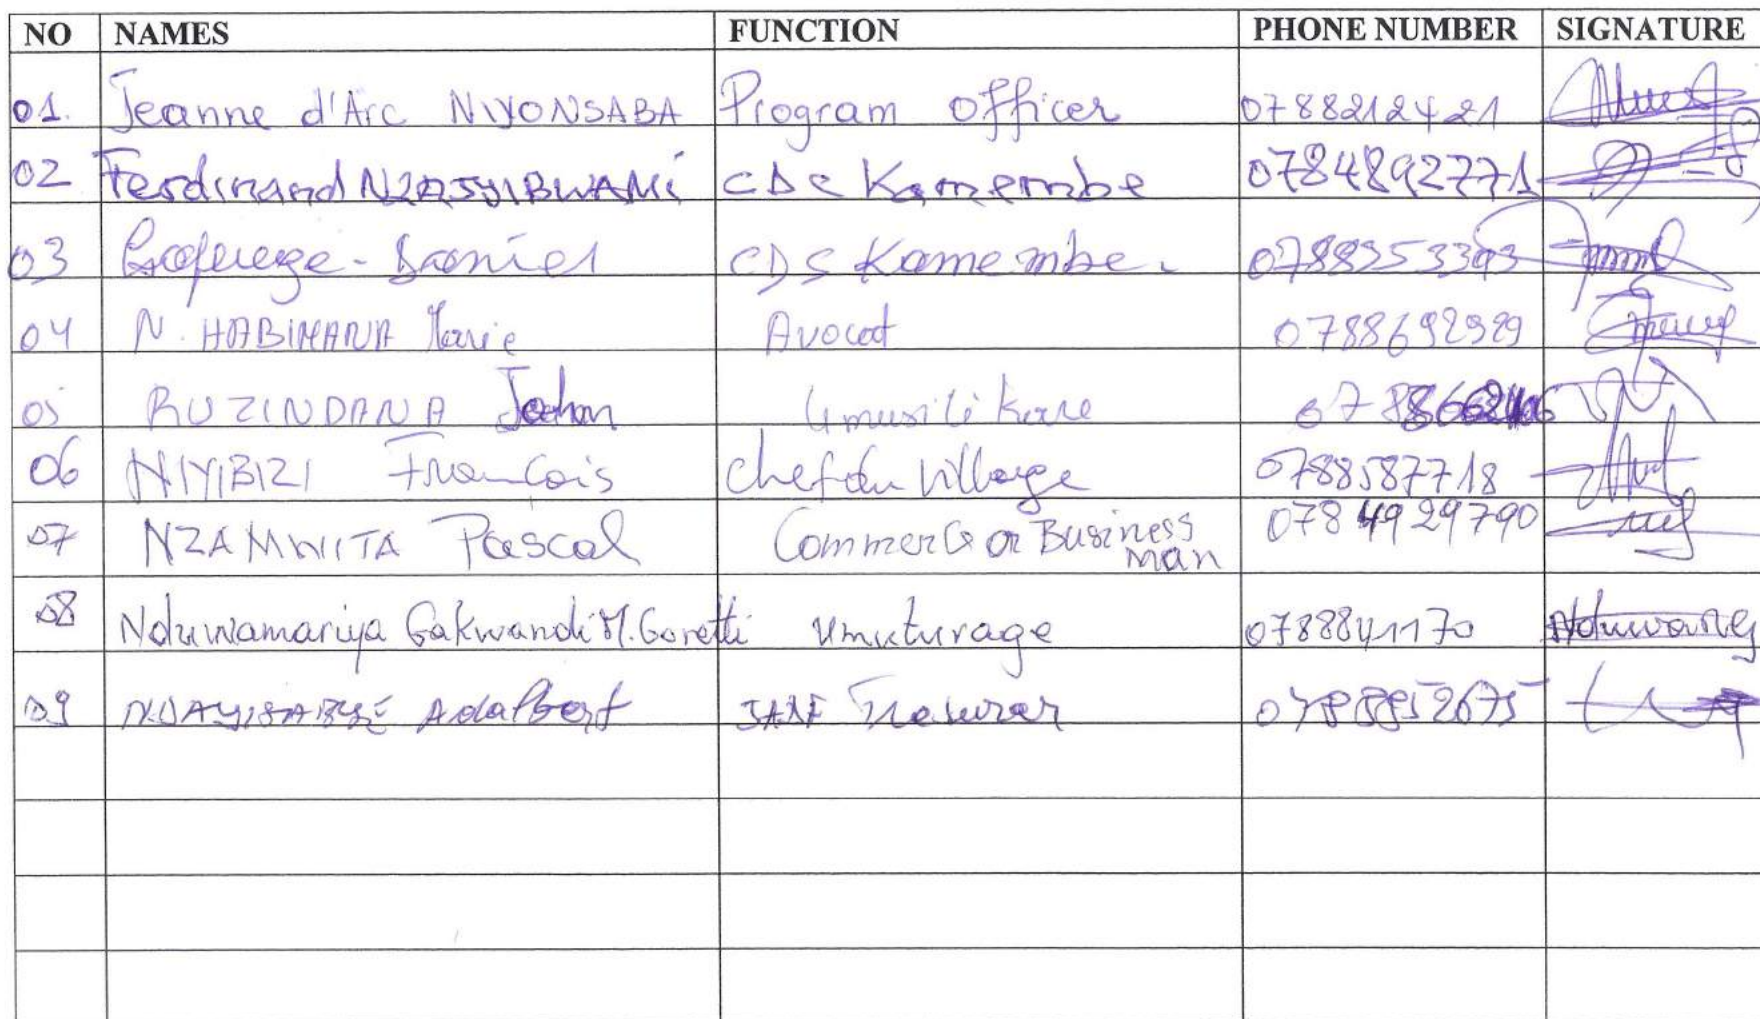 NO NAMES FUNCTION PHONE NUMBER SIGNATURE
01. Jeanne d'Arc NIYONSABA Program Officer 0788212421
02 Ferdinand NZASYIBWAMI CDC Kamembe 0784892771
03 CDS Kamembe. 0788353393
04 N. HABIMANA Marie Avocat 0788692929
05 RUZINDANA John Umusilikare
06 NIYIBIZI François Chef du Village 0788587718
07 NZAMWITA Pascal Commerce or Business 0784929790
Man
08 Nduwamariya Gakwandi M. Goretti Umuturage 0788841170
09 Adalbert 0788852675